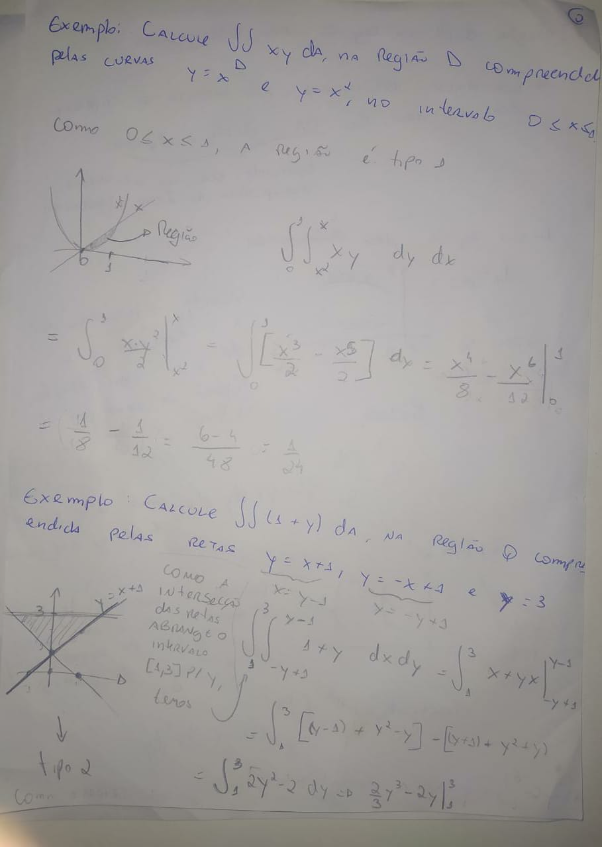 2
Exemplo: Calcule ∬ xy dA, na Região D compreendida
D
pelas curvas y = x e y = x², no intervalo 0 ≤ x ≤ 1
Como 0 ≤ x ≤ 1, a região é tipo 1
x² x
Região
0 1
∫₀¹ ∫_{x²}^{x} xy dy dx
= ∫₀¹ x·y²/2 |_{x²}^{x} = ∫₀¹ [x³/2 − x⁵/2] dx = x⁴/8 − x⁶/12 |₀¹
= 1/8 − 1/12 = 6−4/48 = 1/24
Exemplo: Calcule ∬ (1+y) dA, na Região Q compre
endida pelas retas y = x+1, y = −x+1 e y = 3
x = y−1 x = −y+1
y = x+1
3
tipo 2
Como a
intersecção
das retas
abrange o
intervalo
[1,3] p/ y,
temos
∫₁³ ∫_{−y+1}^{y−1} 1+y dx dy = ∫₁³ x+yx |_{−y+1}^{y−1}
= ∫₁³ [(y−1) + y²−y] − [(−y+1) + −y²+y]
= ∫₁³ 2y²−2 dy ⇒ 2/3 y³−2y |₁³
Como